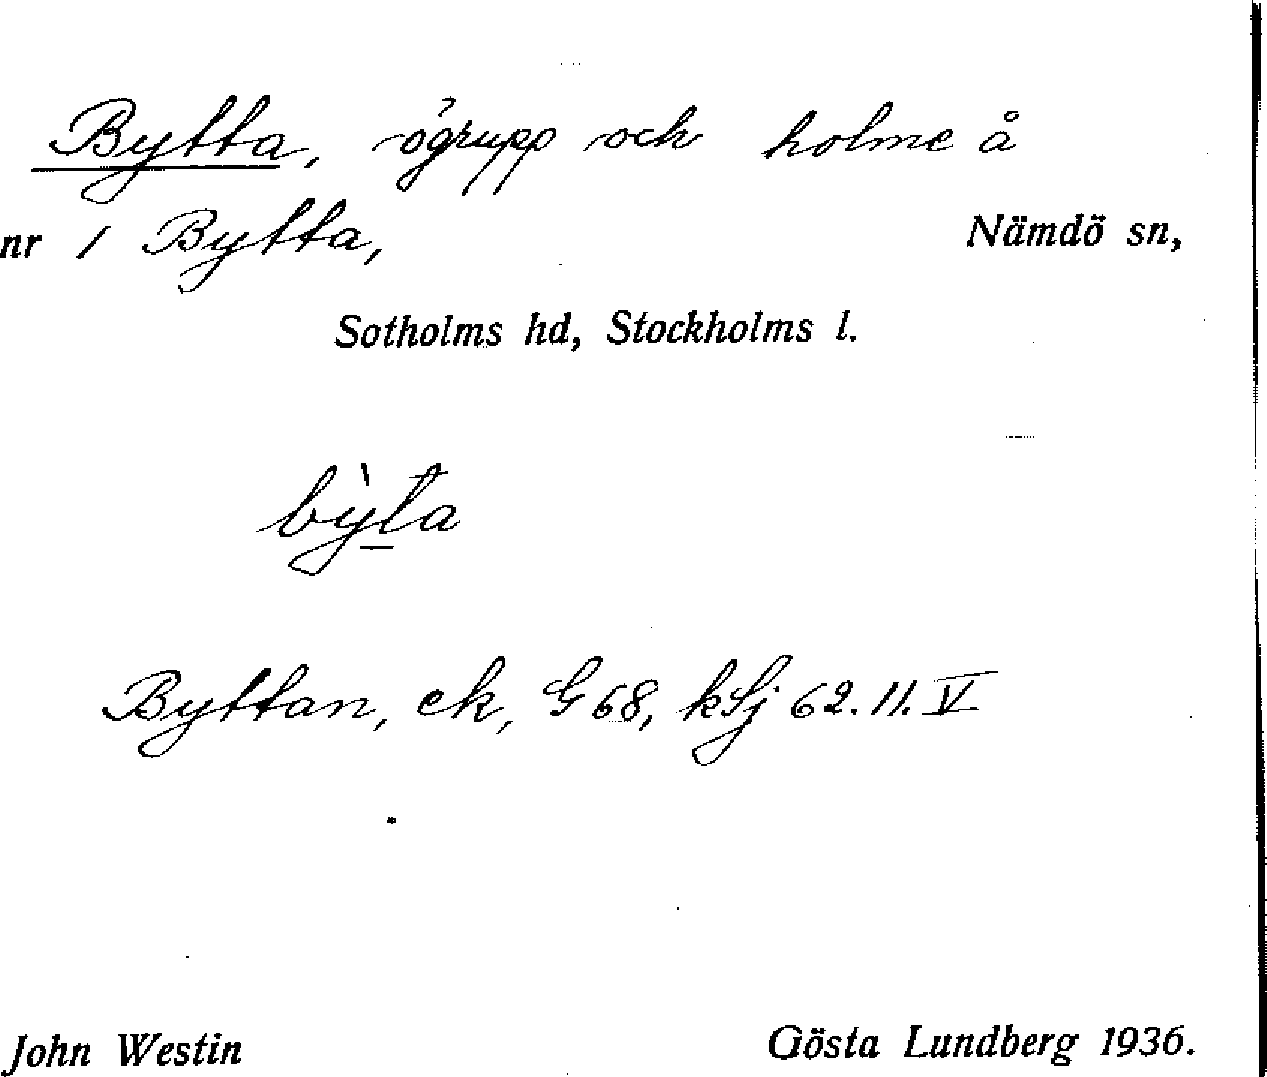 Bytta, ögrupp och holme å
nr 1 Bytta, Nämdö sn,
Sotholms hd, Stockholms l.
bỳta
Byttan, ek, G 68, kSj 62. 11. V
John Westin Gösta Lundberg 1936.